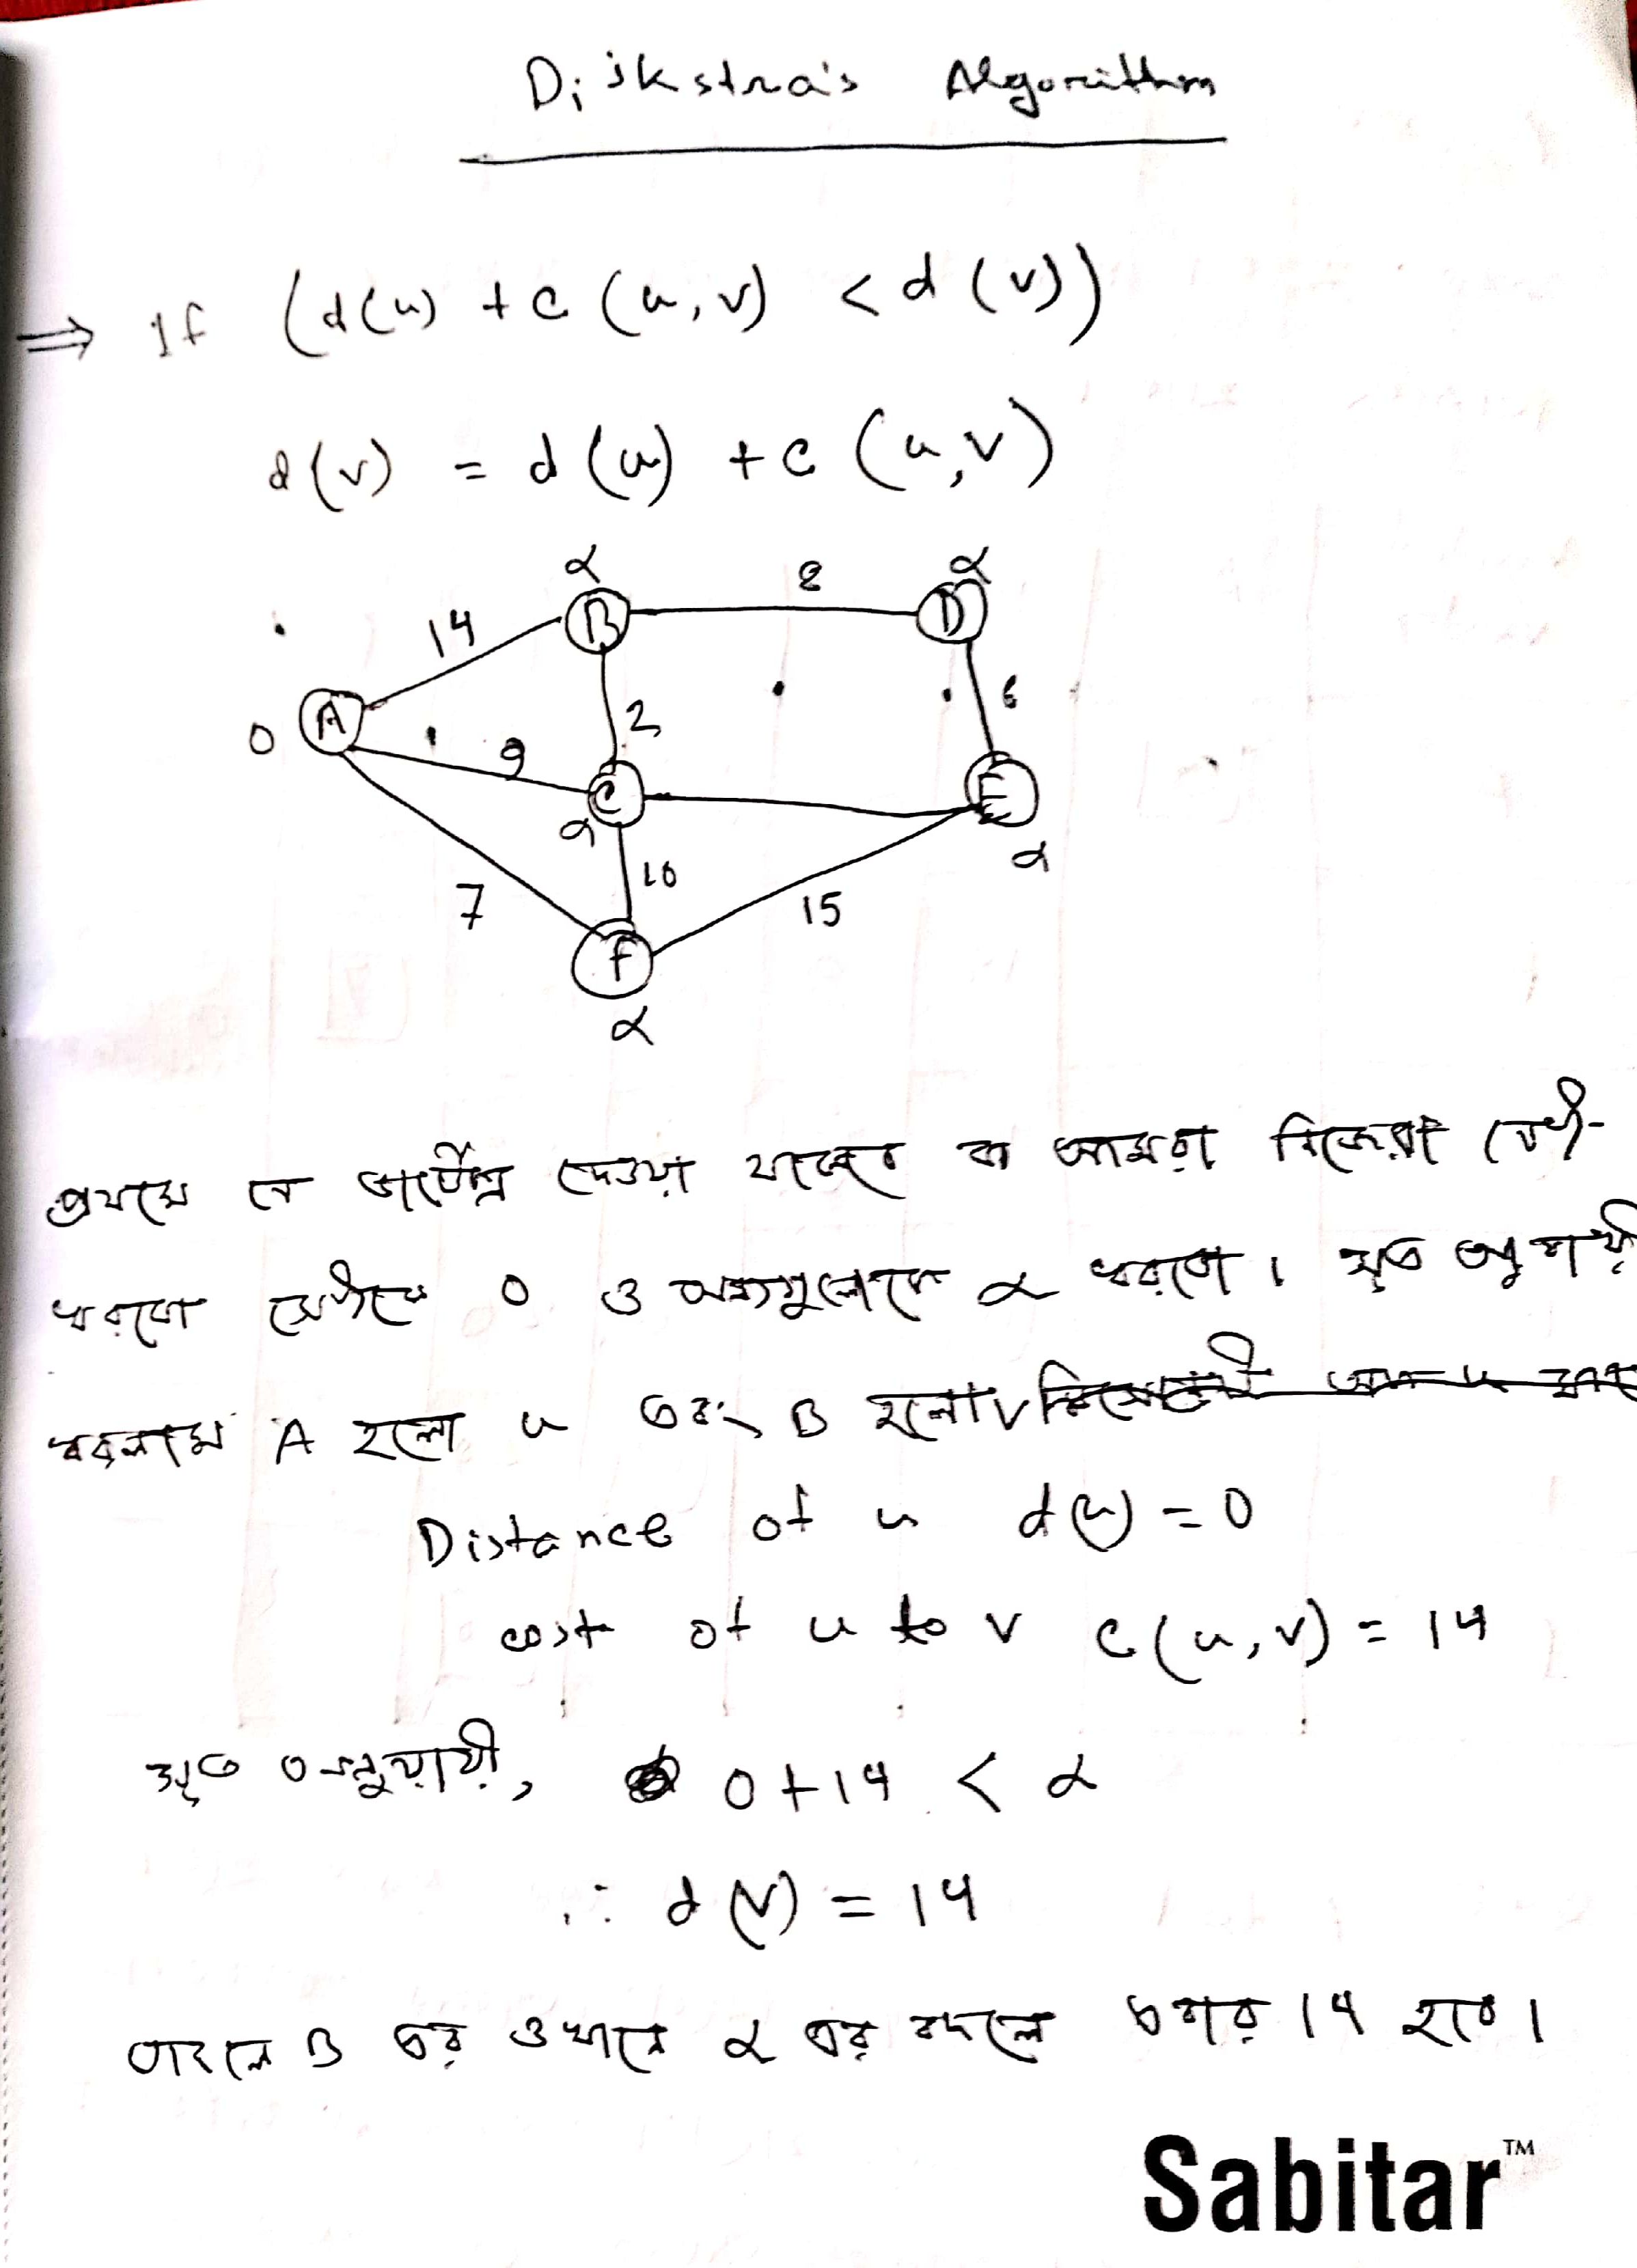 Dijkstra's Algorithm
⇒ If (d(u) + c (u, v) < d (v))
d(v) = d(u) + c (u,v)
α 8 α
14 B D
0 A 9 2 6
C E
α α
7 10 15
F
α
প্রথমে যে দেওয়া থাকবে বা আমরা নিজেরা যেটি
ধরবো সেটাকে 0 ও অন্যগুলোকে α ধরবো। সূত্র অনুযায়ী
ধরলাম A হলো u এবং B হলো v
Distance of u d(u) = 0
cost of u to v c(u, v) = 14
সূত্র অনুযায়ী, 0 + 14 < α
∴ d(v) = 14
তাহলে B এর ওখানে α এর বদলে এবার 14 হবে।
Sabitar™